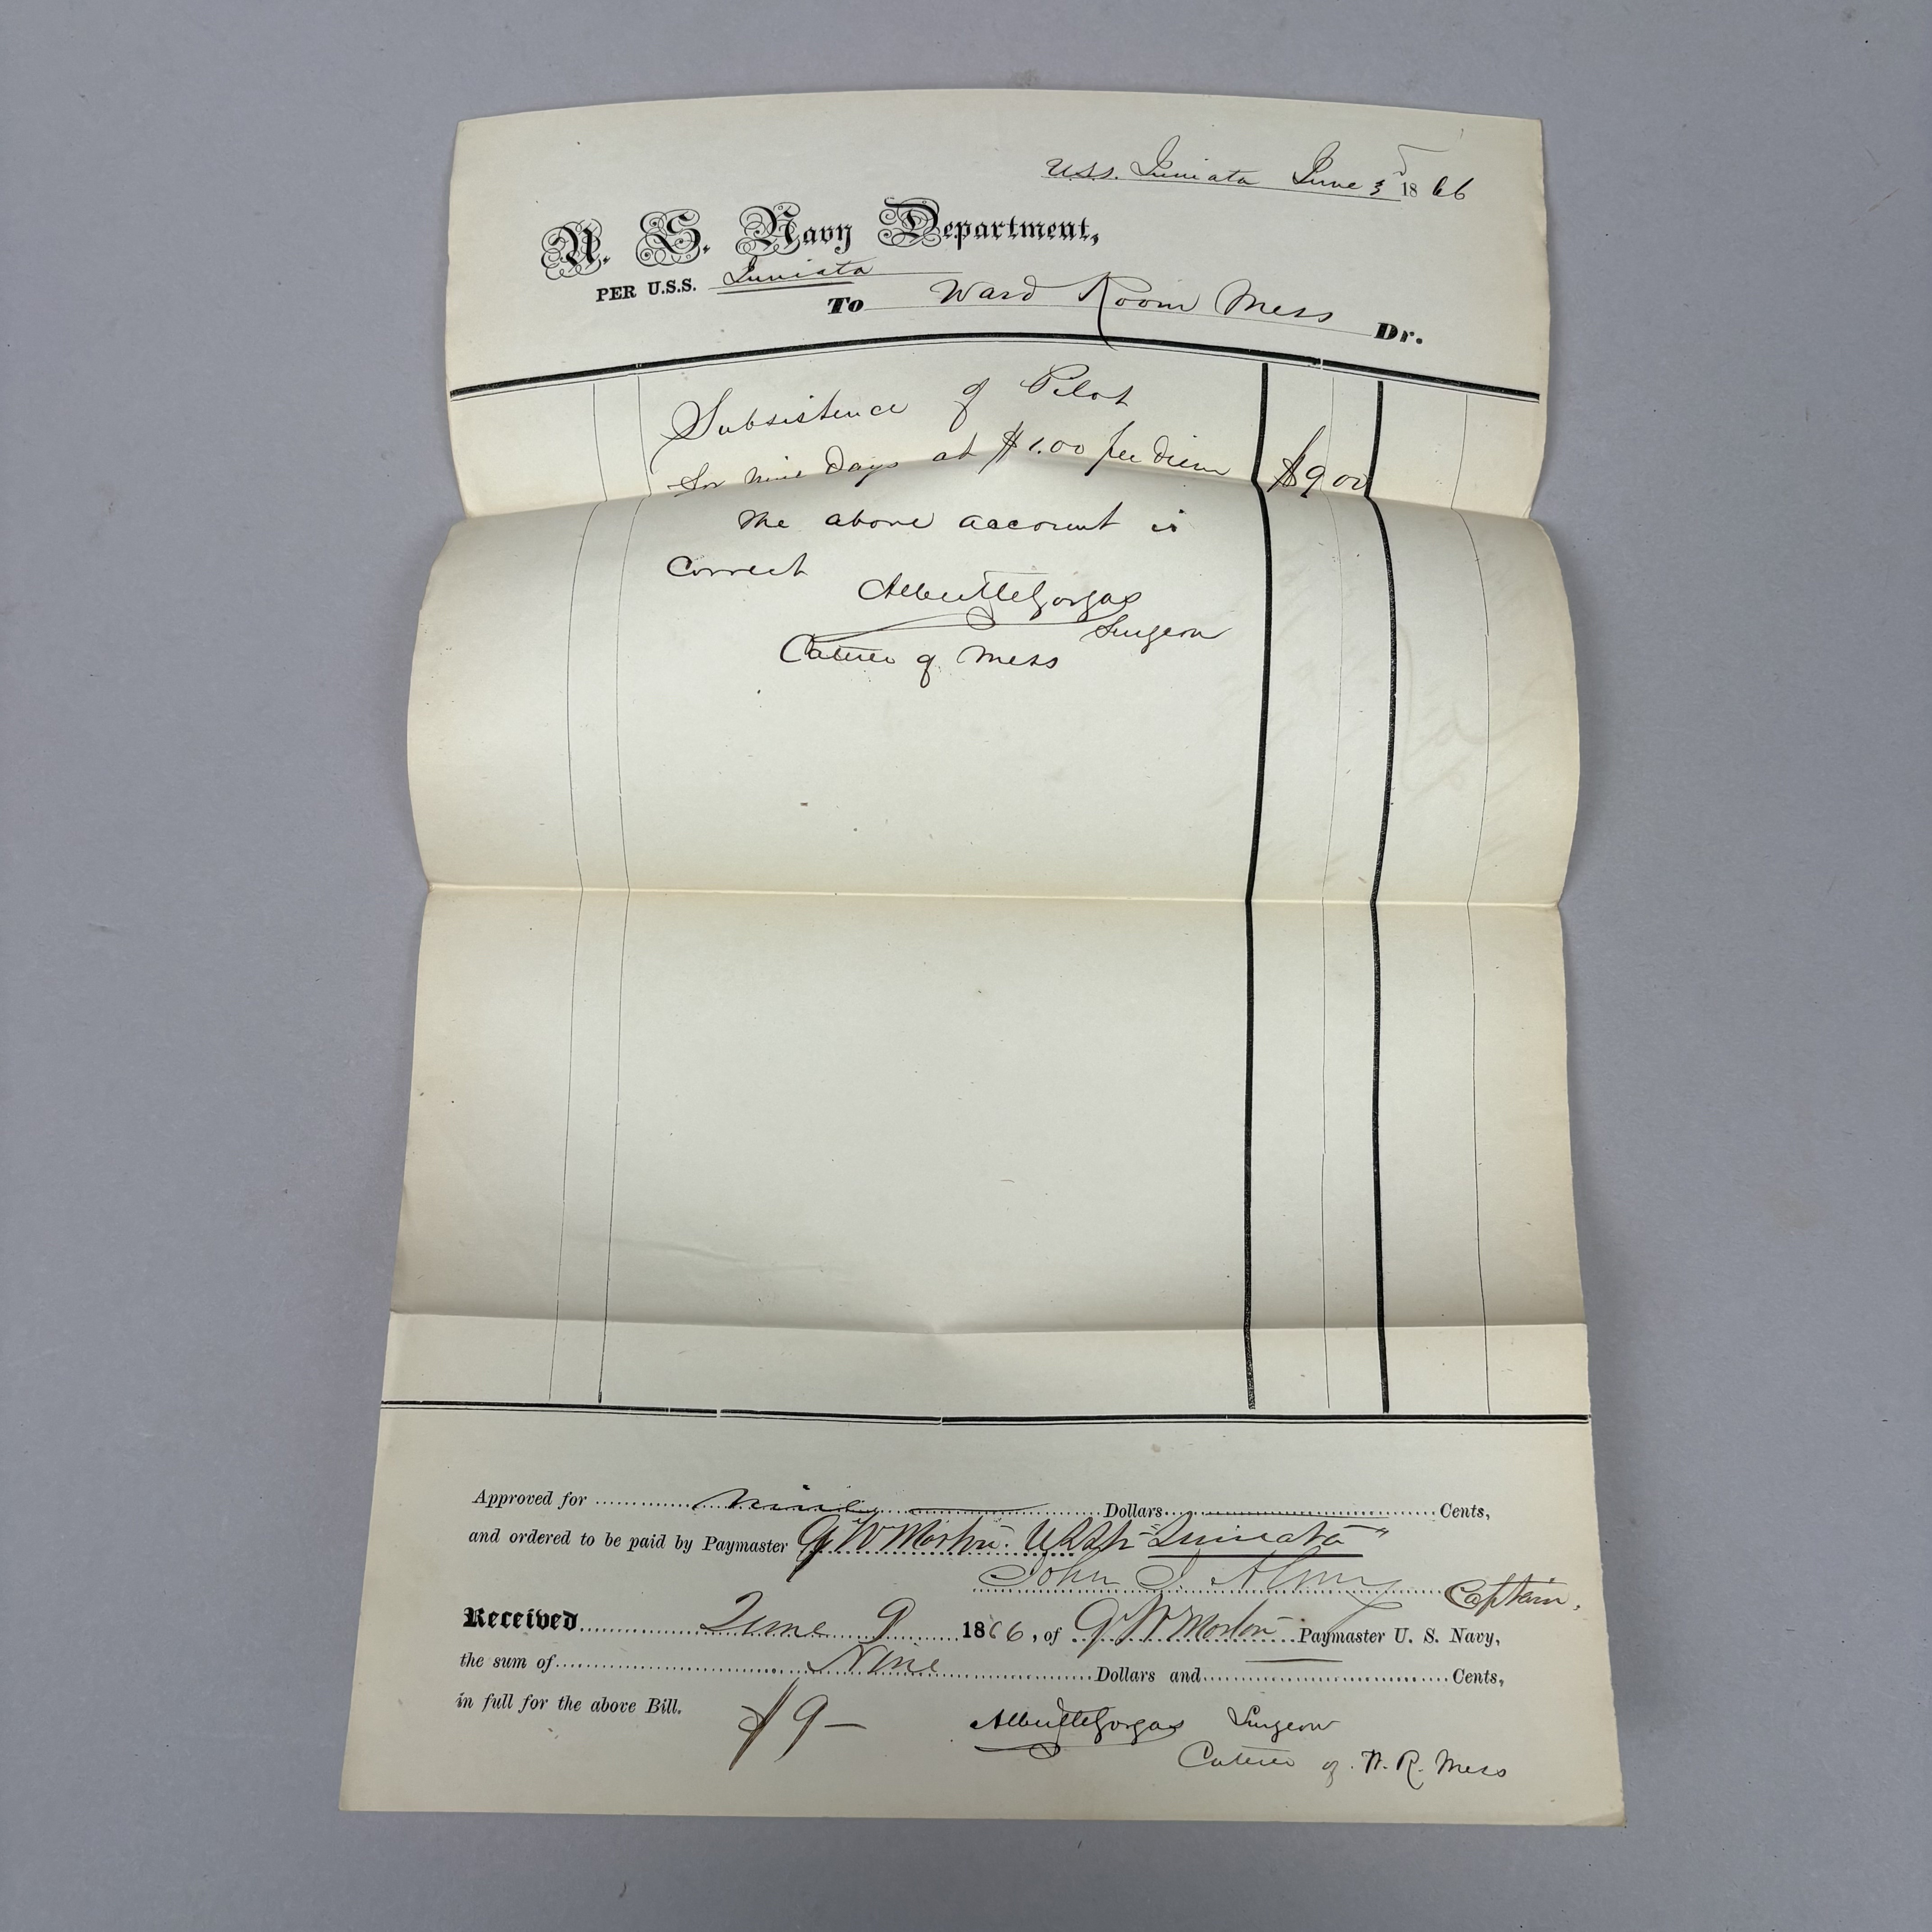 U.S.S. Juniata June 3 1866
U. S. Navy Department,
PER U.S.S. Juniata
To Ward Room Mess Dr.
Subsistence of Pilot
for nine Days at $1.00 per diem $9 00
The above account is
correct
Albert C Gorgas
Surgeon
Caterer of Mess
Approved for nine Dollars Cents,
and ordered to be paid by Paymaster G W Morton. "Juniata"
John J. Almy Captain.
Received June 9 1866, of G W Morton Paymaster U. S. Navy,
the sum of Nine Dollars and Cents,
in full for the above Bill. $9—
Albert C Gorgas Surgeon
Caterer of W. R. Mess